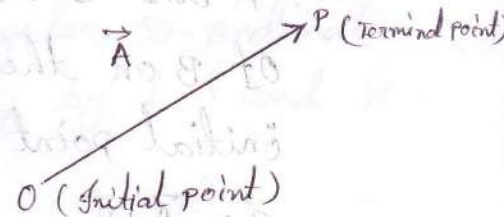 A⃗
P (Termind point)
O (Initial point)